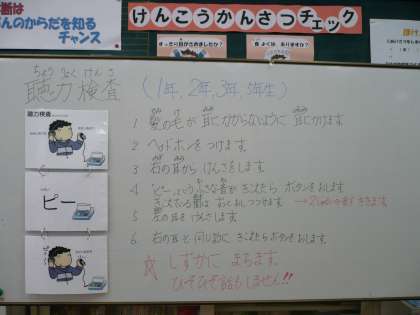 断は
んのからだを知る
チャンス
けんこうかんさつチェック
すっきり目がさめましたか？
ちょうりょくけんさ
聴力検査
(1年、2年、3年、5年生)
聴力検査
ピー
1 髪の毛が耳にかからないように耳にかけます。
2 ヘッドホンをつけます。
3 右の耳からけんさをします。
4 「ピー」という小さな音がきこえたらボタンをおします。
きこえている間はおしつづけます。
5 左の耳をけんさします。
6 右の耳と同じようにきこえたらボタンをおします。
☆ しずかにまちます。
ひそひそ話もしません!!